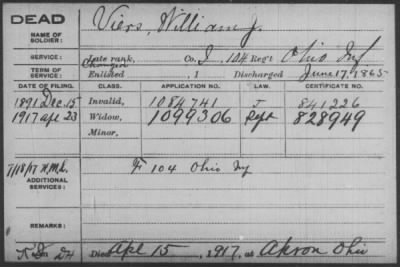 DEAD
Viers, William J.
NAME OF
SOLDIER:
SERVICE:
Late rank,
Co. I, 104 Reg't Ohio Inf
TERM OF
SERVICE:
Enlisted , 1 Discharged June 17, 1865
DATE OF FILING. CLASS. APPLICATION NO. LAW. CERTIFICATE NO.
1891 Dec. 15 Invalid, 1084741 J 841226
1917 apr 23 Widow, 1099306 Sept 828949
Minor,
7/18/17
F 104 Ohio Inf
ADDITIONAL
SERVICES:
REMARKS:
Died Apl 15, 1917, at Akron Ohio